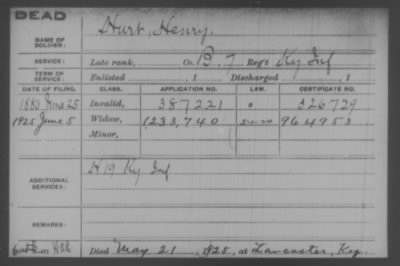 DEAD
NAME OF SOLDIER: Hurt, Henry.
SERVICE: Late rank, Co. B. 7 Reg't Ky Inf
TERM OF SERVICE: Enlisted , 1 Discharged , 1
DATE OF FILING. CLASS. APPLICATION NO. LAW. CERTIFICATE NO.
1880 June 25 Invalid, 387221 326729
1925 June 5 Widow, 1,233,740 964953
Minor,
ADDITIONAL SERVICES: H 19 Ky Inf
REMARKS:
Died May 21, 1925, at Lancaster, Ky.